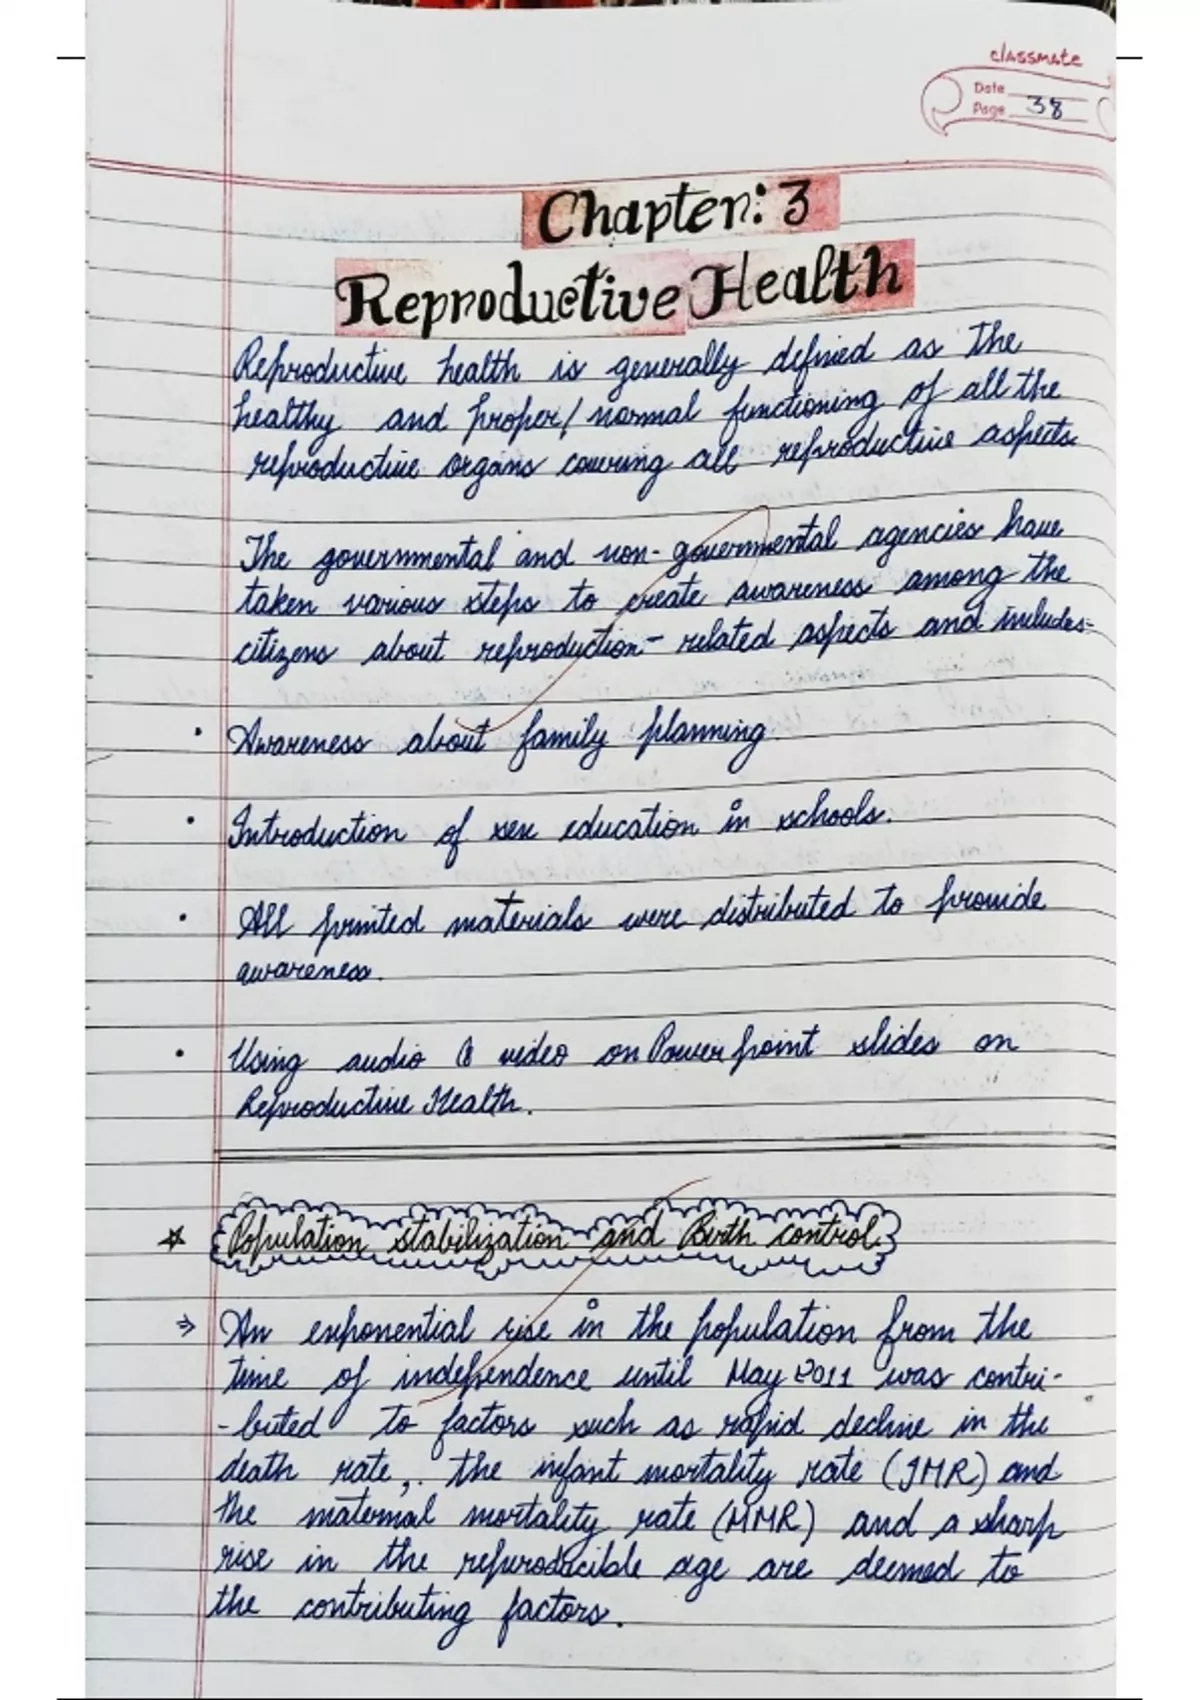 classmate
Date
Page 38
Chapter: 3
Reproductive Health
Reproductive health is generally defined as the
healthy and proper/normal functioning of all the
reproductive organs covering all reproductive aspects.
The governmental and non-governmental agencies have
taken various steps to create awareness among the
citizens about reproduction-related aspects and includes-
• Awareness about family planning.
• Introduction of sex education in schools.
• All printed materials were distributed to provide
awareness.
• Using audio & video on Power point slides on
Reproductive Health.
☆ Population stabilization and Birth control.
⇒ An exponential rise in the population from the
time of independence until May 2011 was contri-
-buted to factors such as rapid decline in the
death rate, the infant mortality rate (IMR) and
the maternal mortality rate (MMR) and a sharp
rise in the reproducible age are deemed to
the contributing factors.